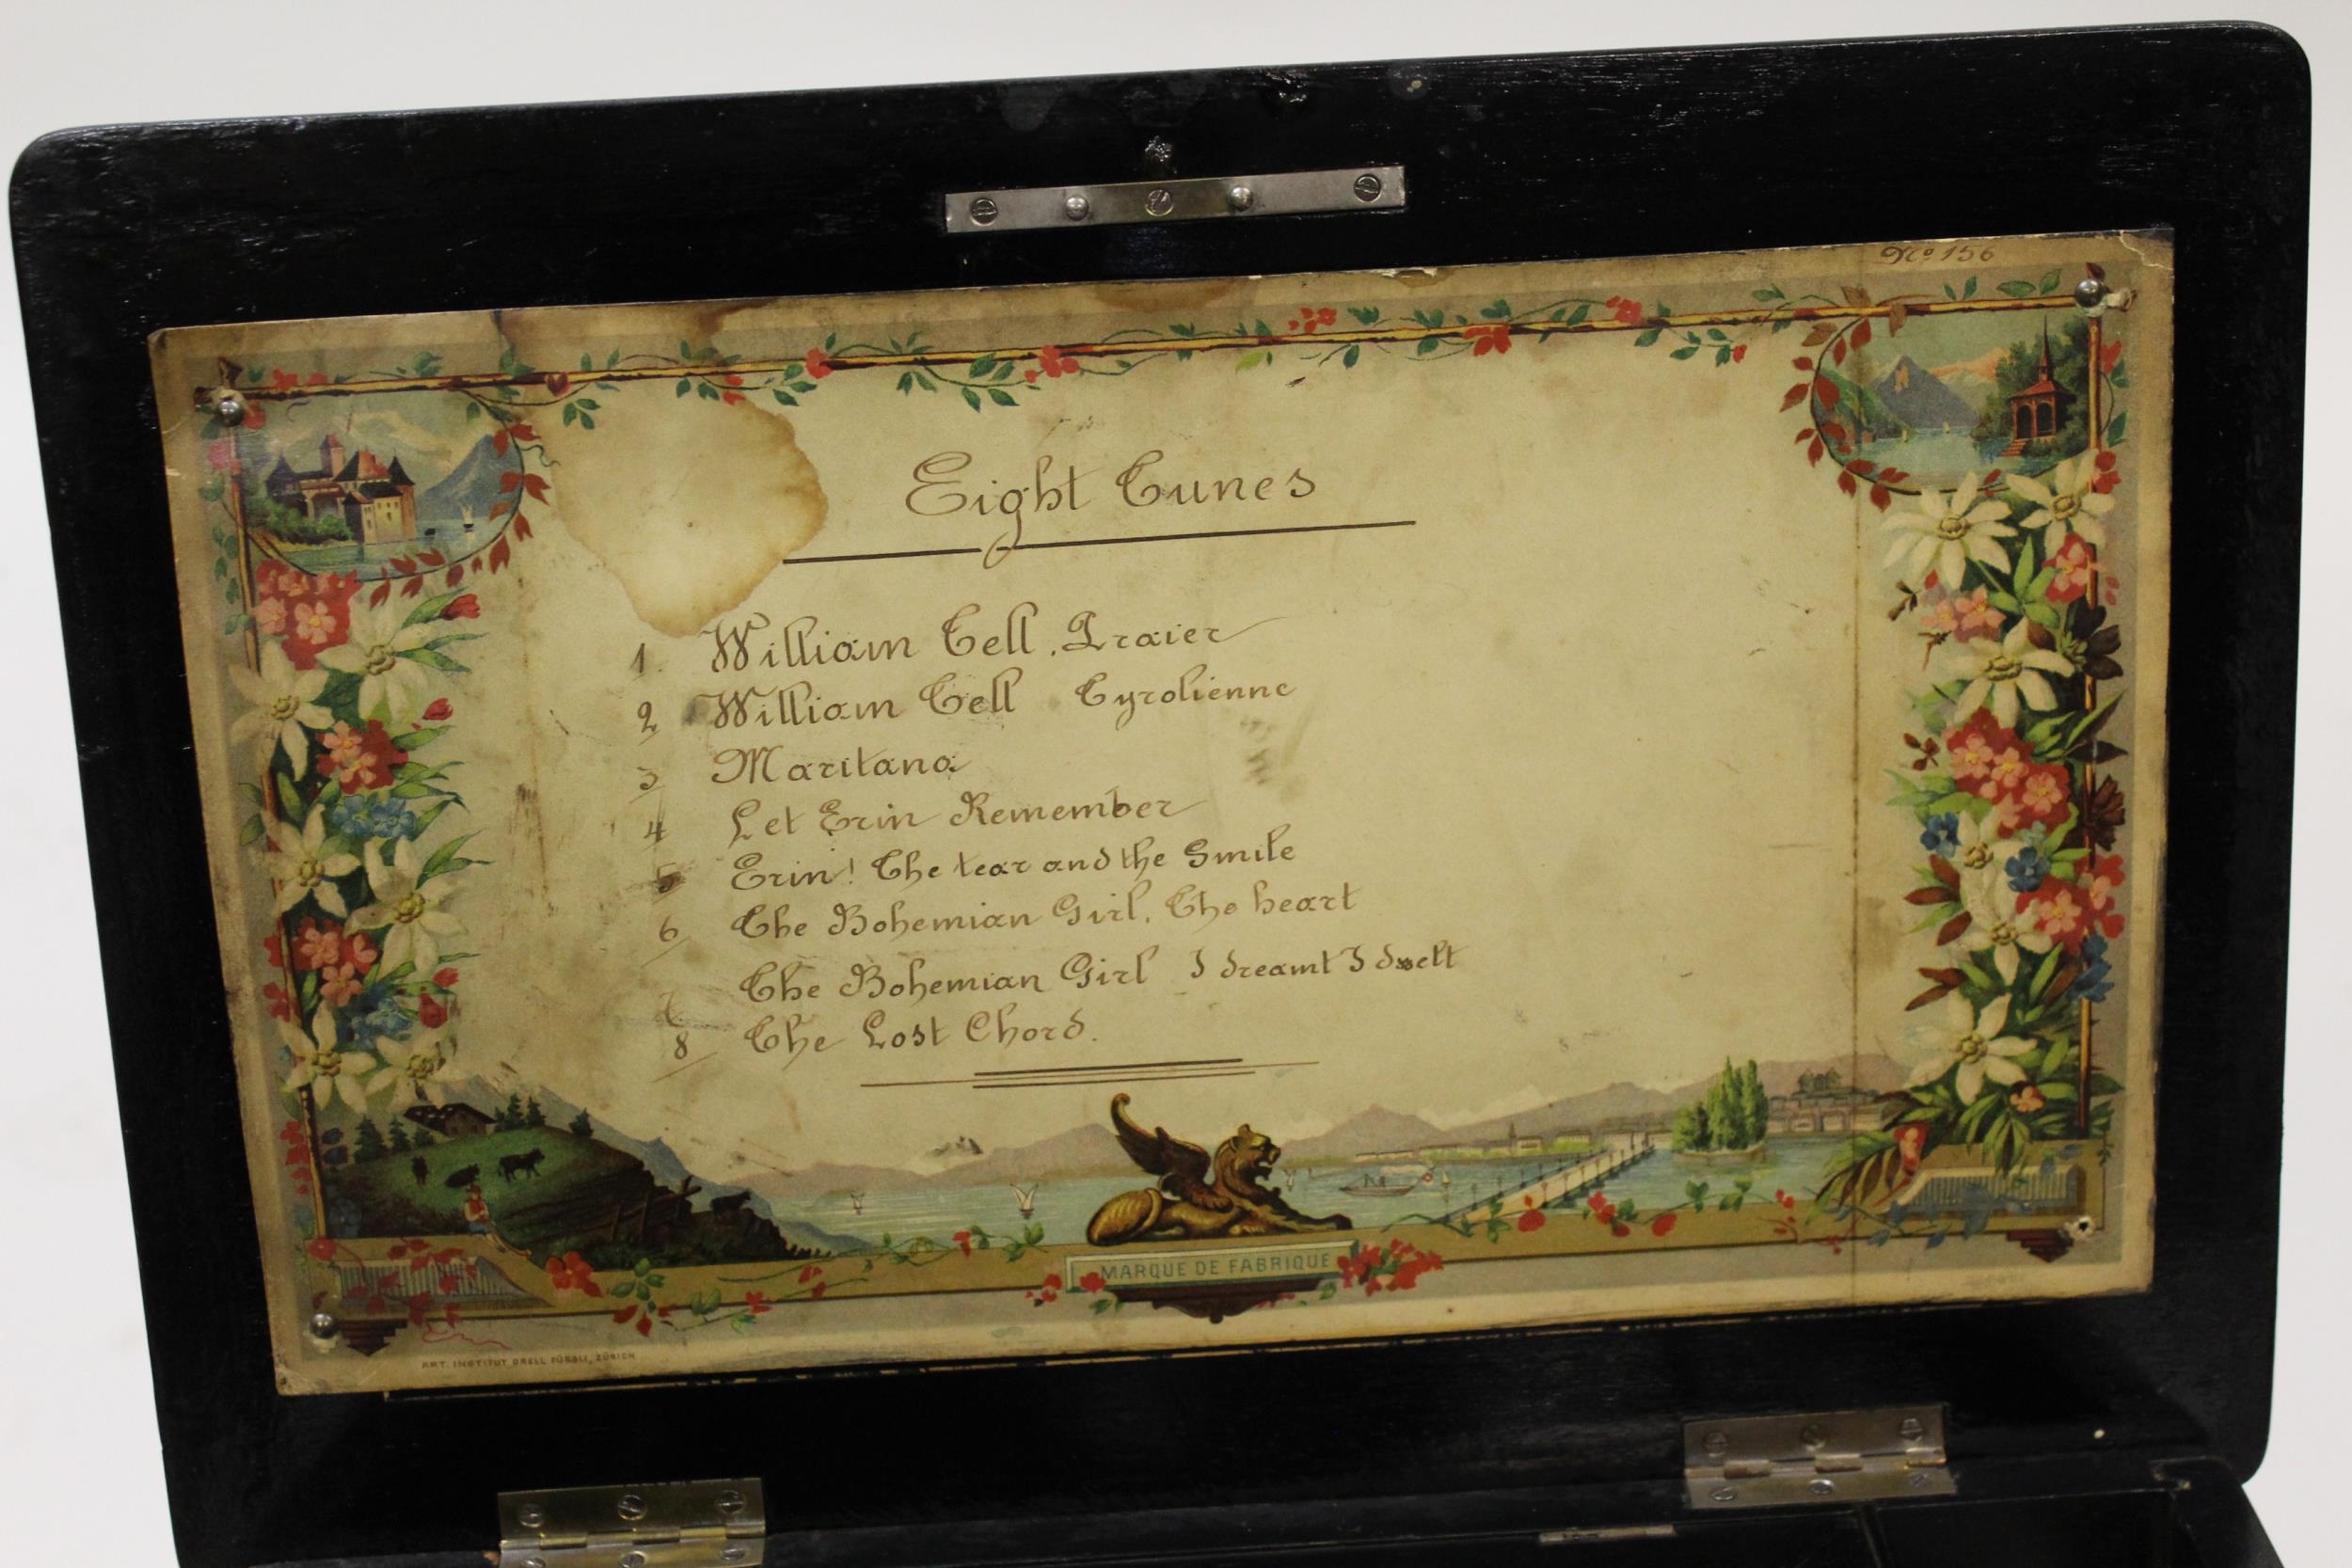 No 156
Eight Tunes
1. William Tell. Praier
2 William Tell Tyrolienne
3 Maritana
4 Let Erin Remember
5 Erin! The tear and the Smile
6 The Bohemian Girl. The heart
7 The Bohemian Girl I dreamt I dwelt
8 The Lost Chord.
MARQUE DE FABRIQUE
ART. INSTITUT ORELL FÜSSLI, ZÜRICH